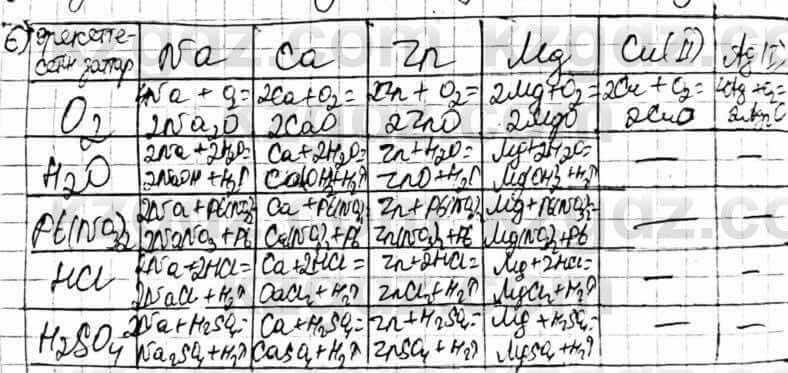 6) әрекетте-
сетін заттар Na Ca Zn Mg Cu(II) Ag(I)
O2
4Na + O2 =
2Na2O
2Ca + O2 =
2CaO
2Zn + O2 =
2ZnO
2Mg + O2 =
2MgO
2Cu + O2 =
2CuO
4Ag + O2 =
2Ag2O
H2O
2Na + 2H2O =
2NaOH + H2↑
Ca + 2H2O =
Ca(OH)2 + H2↑
Zn + H2O =
ZnO + H2↑
Mg + 2H2O =
Mg(OH)2 + H2↑
— —
Pb(NO3)2
2Na + Pb(NO3)2
2NaNO3 + Pb
Ca + Pb(NO3)2
Ca(NO3)2 + Pb
Zn + Pb(NO3)2
Zn(NO3)2 + Pb
Mg + Pb(NO3)2 =
Mg(NO3)2 + Pb
— —
HCl
2Na + 2HCl =
2NaCl + H2↑
Ca + 2HCl =
CaCl2 + H2↑
Zn + 2HCl =
ZnCl2 + H2↑
Mg + 2HCl =
MgCl2 + H2↑
— —
H2SO4
2Na + H2SO4 =
Na2SO4 + H2↑
Ca + H2SO4 =
CaSO4 + H2↑
Zn + H2SO4 =
ZnSO4 + H2↑
Mg + H2SO4 =
MgSO4 + H2↑
— —